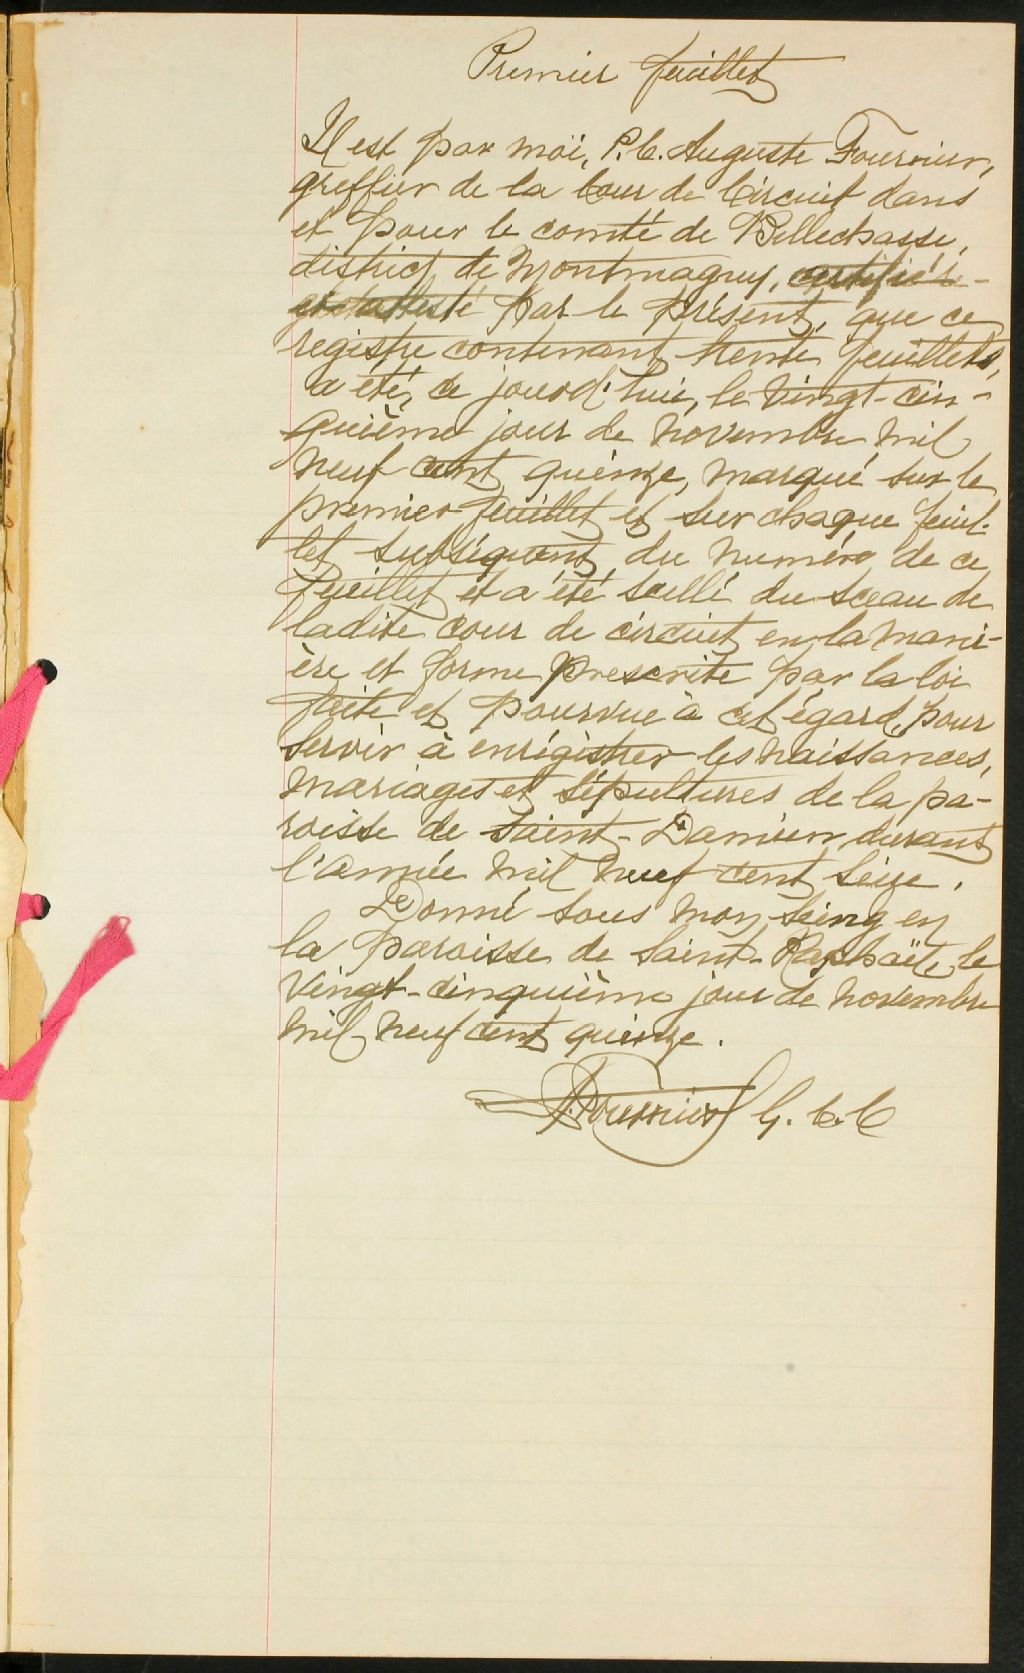 Premier feuillet
Il est par moi, P. C. Auguste Fournier,
greffier de la Cour de Circuit dans
et pour le comté de Bellechasse,
district de Montmagny, certifié
et attesté par le présent, que ce
registre contenant trente feuillets,
a été, ce jourd'hui, le vingt-cin-
quième jour de novembre mil
neuf cent quinze, marqué sur le
premier feuillet et sur chaque feuil-
let subséquent du numéro de ce
feuillet et a été scellé du sceau de
ladite cour de circuit en la mani-
ère et forme prescrite par la loi
faite et pourvue à cet égard, pour
servir à enrégistrer les naissances,
mariages et sépultures de la pa-
roisse de Saint-Damien durant
l'année mil neuf cent seize.
Donné sous mon seing en
la paroisse de Saint-Raphaël, le
vingt-cinquième jour de novembre
mil neuf cent quinze.
Fournier G. C. C